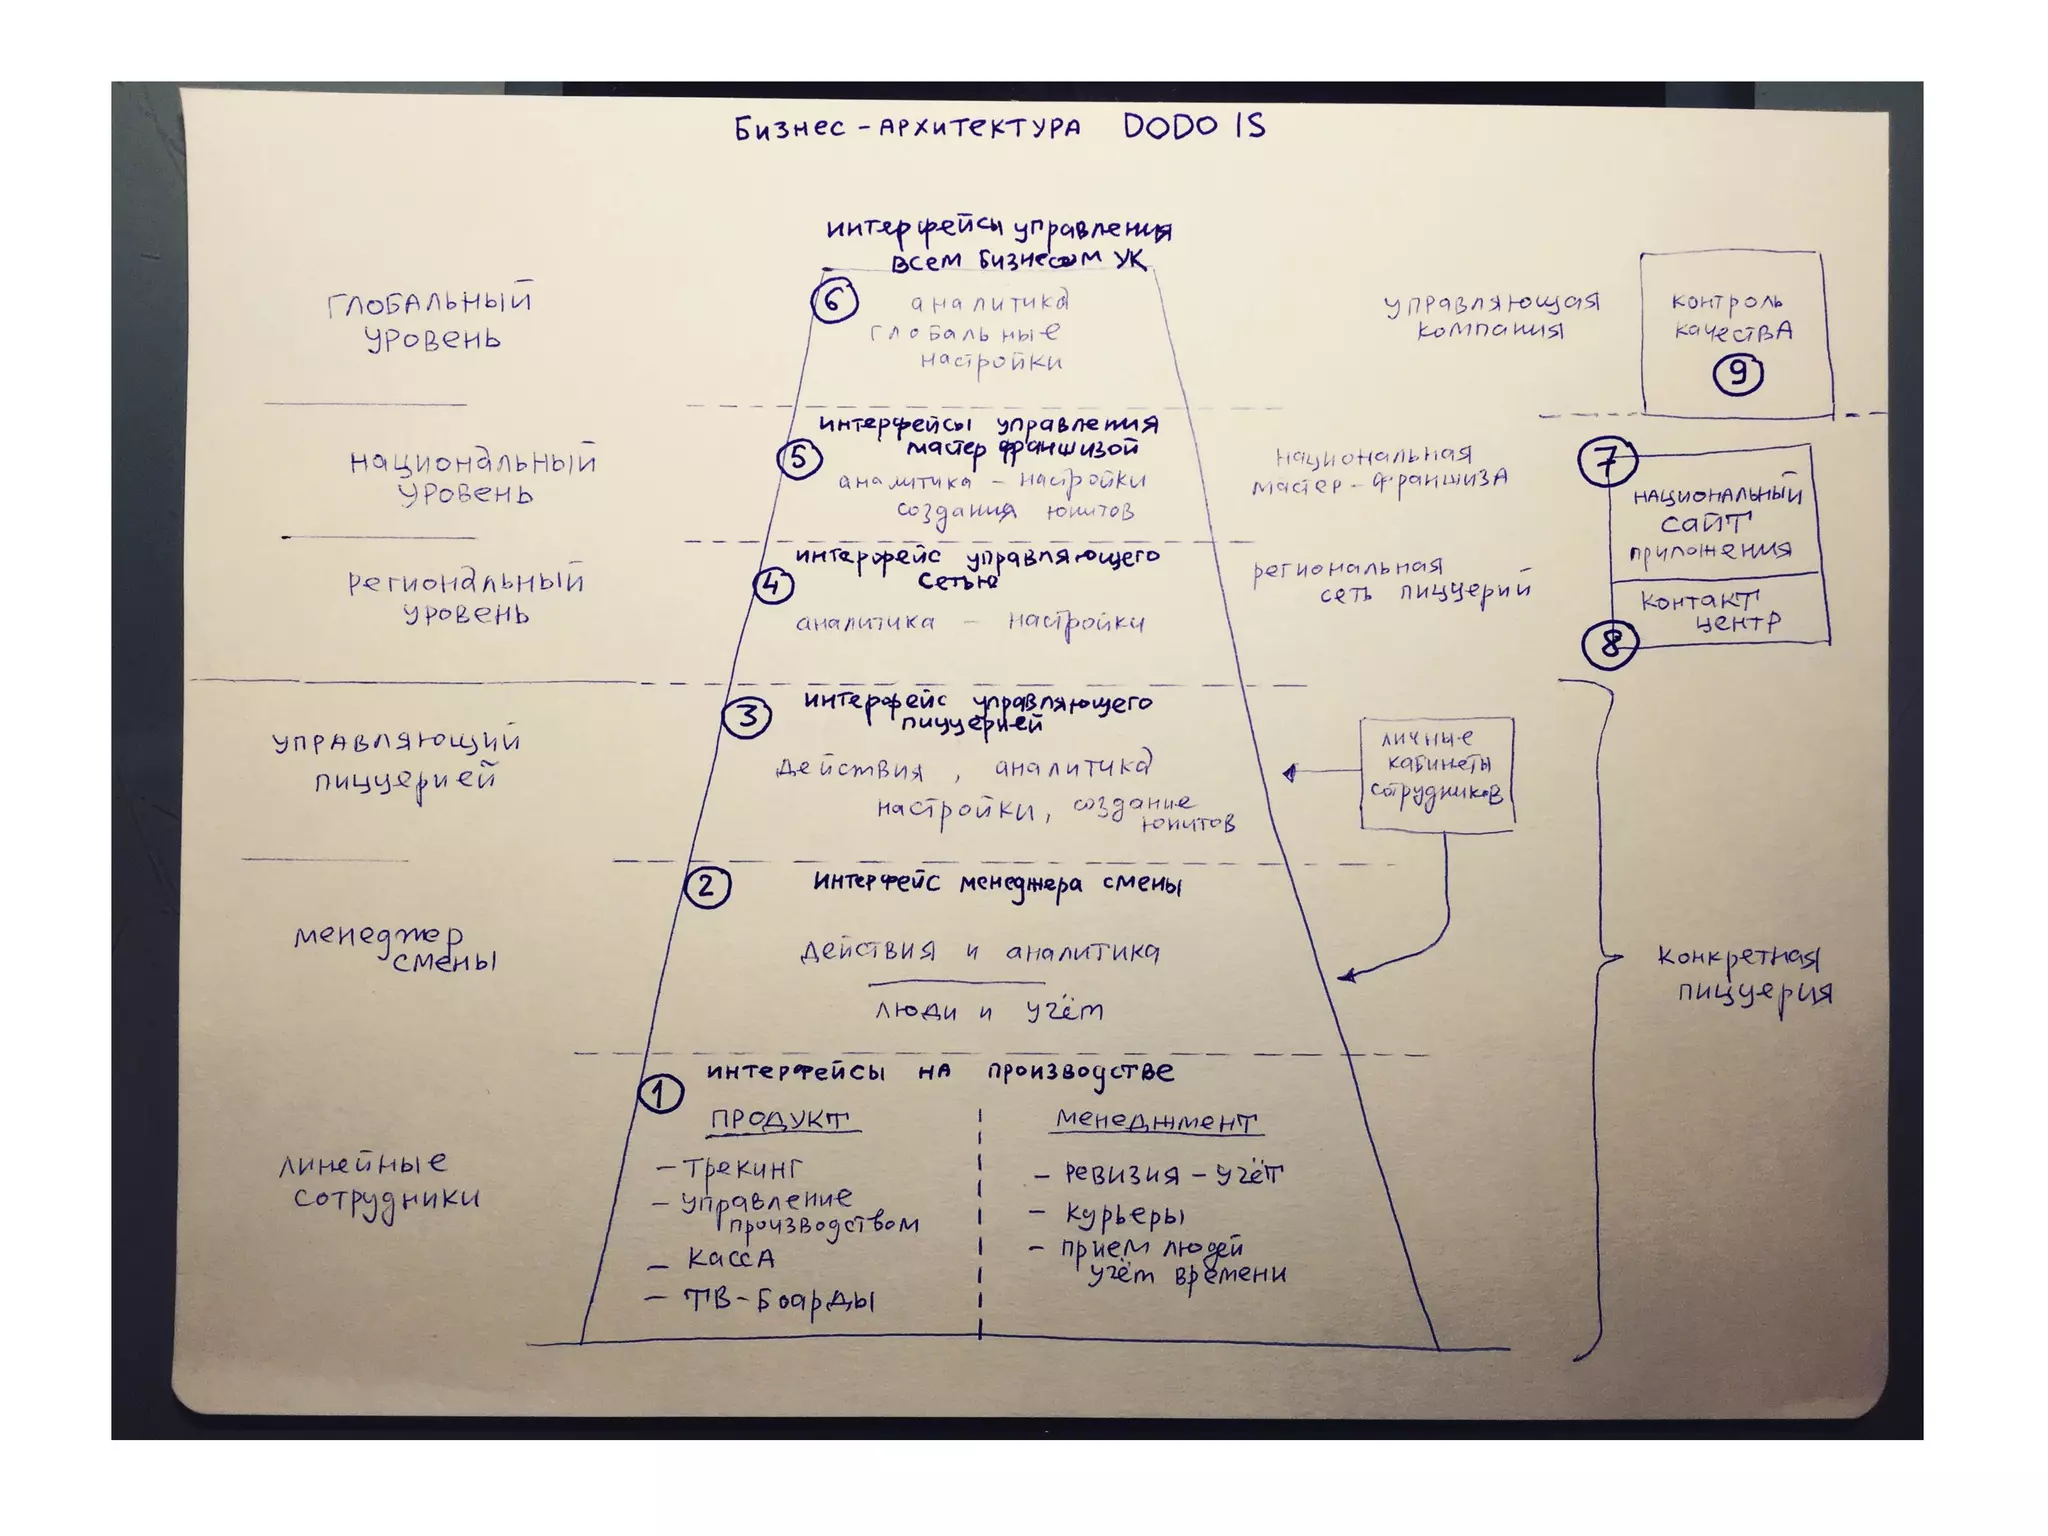 Бизнес-архитектура DODO IS
интерфейсы управления
всем бизнесом УК
6
аналитика
глобальные
настройки
глобальный
уровень
управляющая
компания
контроль
качества
9
интерфейсы управления
мастер франшизой
5
аналитика - настройки
создания юнитов
национальный
уровень
национальная
мастер-франшиза
7
национальный
сайт
приложения
контакт
центр
8
интерфейс управляющего
сетью
4
аналитика - настройки
региональный
уровень
региональная
сеть пиццерий
3
интерфейс управляющего
пиццерией
действия, аналитика
настройки, создание
юнитов
управляющий
пиццерией
личные
кабинеты
сотрудников
2
интерфейс менеджера смены
действия и аналитика
люди и учёт
менеджер
смены
конкретная
пиццерия
1
интерфейсы на производстве
продукт
- трекинг
- управление
производством
- касса
- ТВ-борды
менеджмент
- ревизия - учёт
- курьеры
- прием людей
учёт времени
линейные
сотрудники